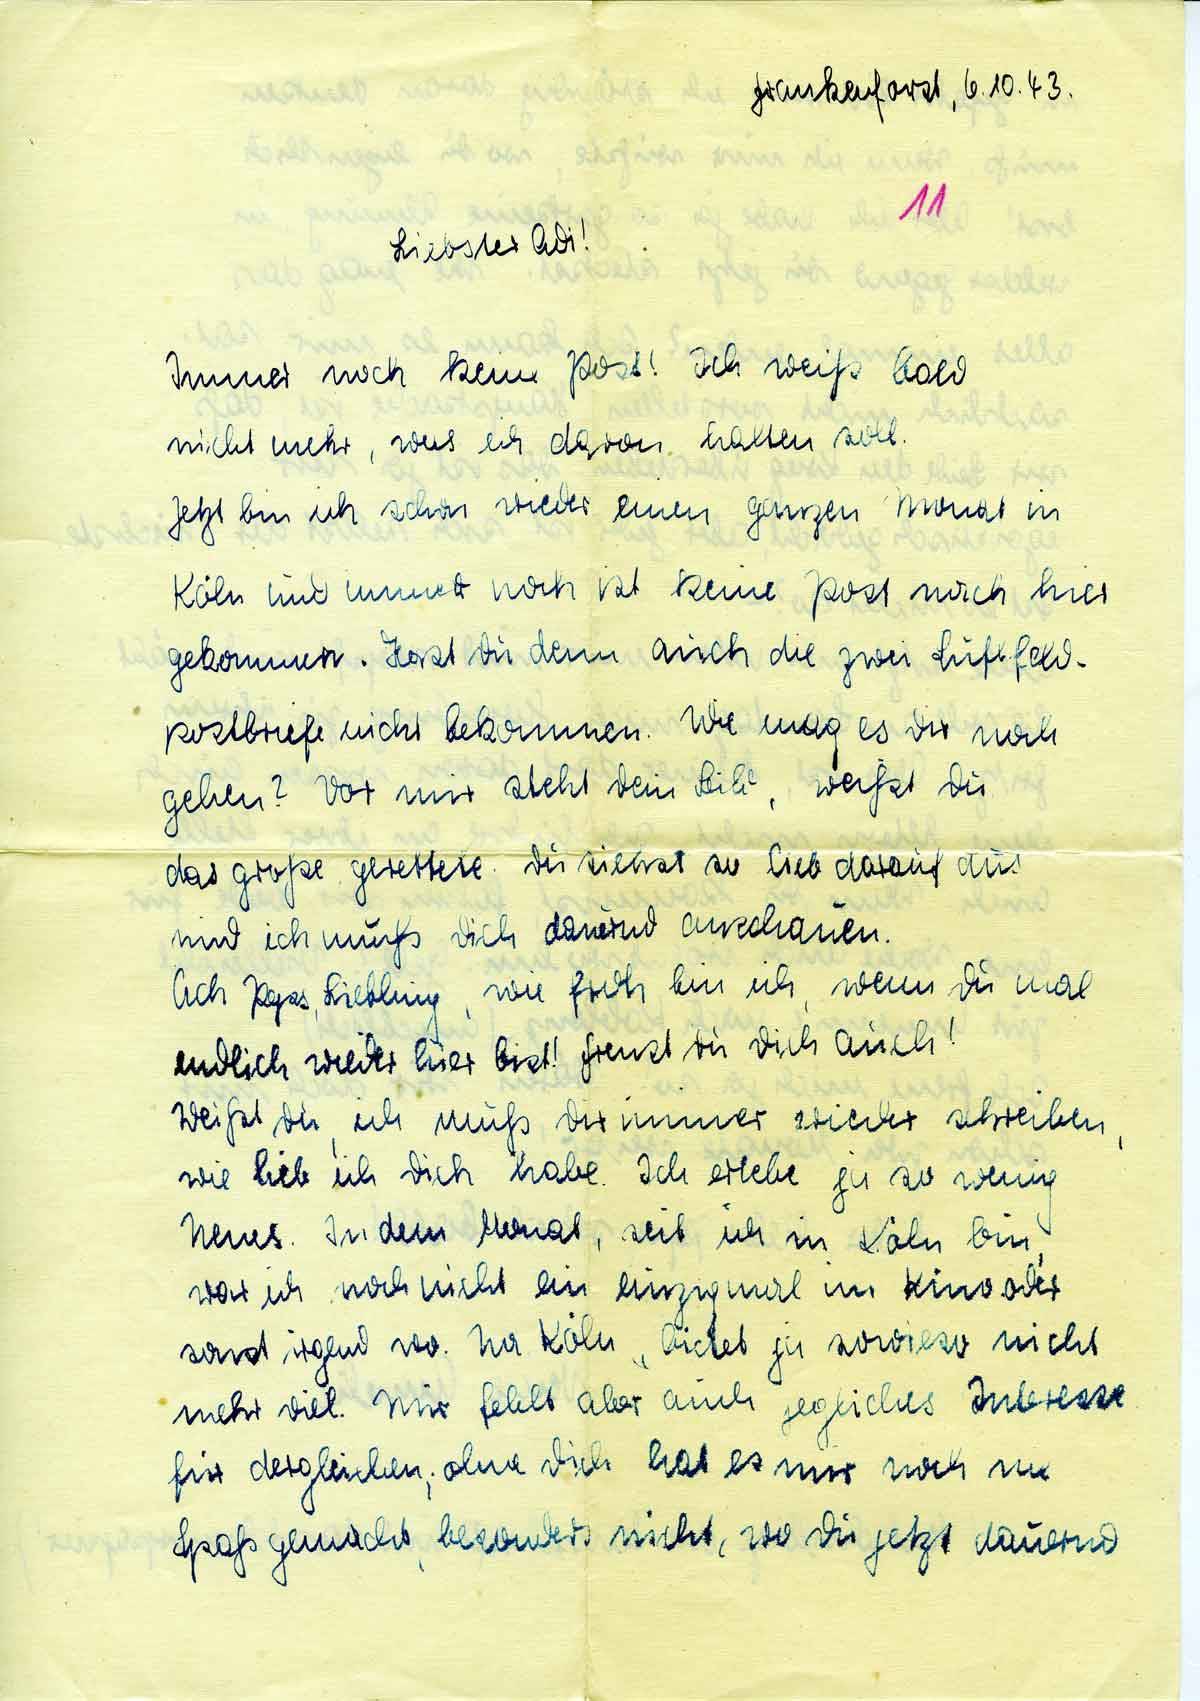 Frankenforst, 6.10.43.
11
Liebster Adi!
Immer noch keine Post! Ich weiß bald
nicht mehr, was ich davon halten soll.
Jetzt bin ich schon wieder einen ganzen Monat in
Köln und immer noch ist keine Post nach hier
gekommen. Hast Du denn auch die zwei Luftfeld-
postbriefe nicht bekommen. Wie mag es Dir noch
gehen? Vor mir steht dein Bild, weißt Du
das große gerettete. Du siehst so lieb darauf aus
und ich muß Dich dauernd anschauen.
Ach Liebling, wie froh bin ich, wenn Du mal
endlich wieder hier bist! Freust Du Dich auch!
Weißt Du, ich muß Dir immer wieder schreiben,
wie lieb ich Dich habe. Ich erlebe ja so wenig
Neues. In dem Monat, seit ich in Köln bin,
war ich noch nicht ein einzigmal im Kino oder
sonst irgend wo. Na Köln bietet ja sowieso nicht
mehr viel. Mir fehlt aber auch jegliches Interesse
für dergleichen, ohne Dich hat es mir noch nie
Spaß gemacht, besonders nicht, wo Du jetzt dauernd